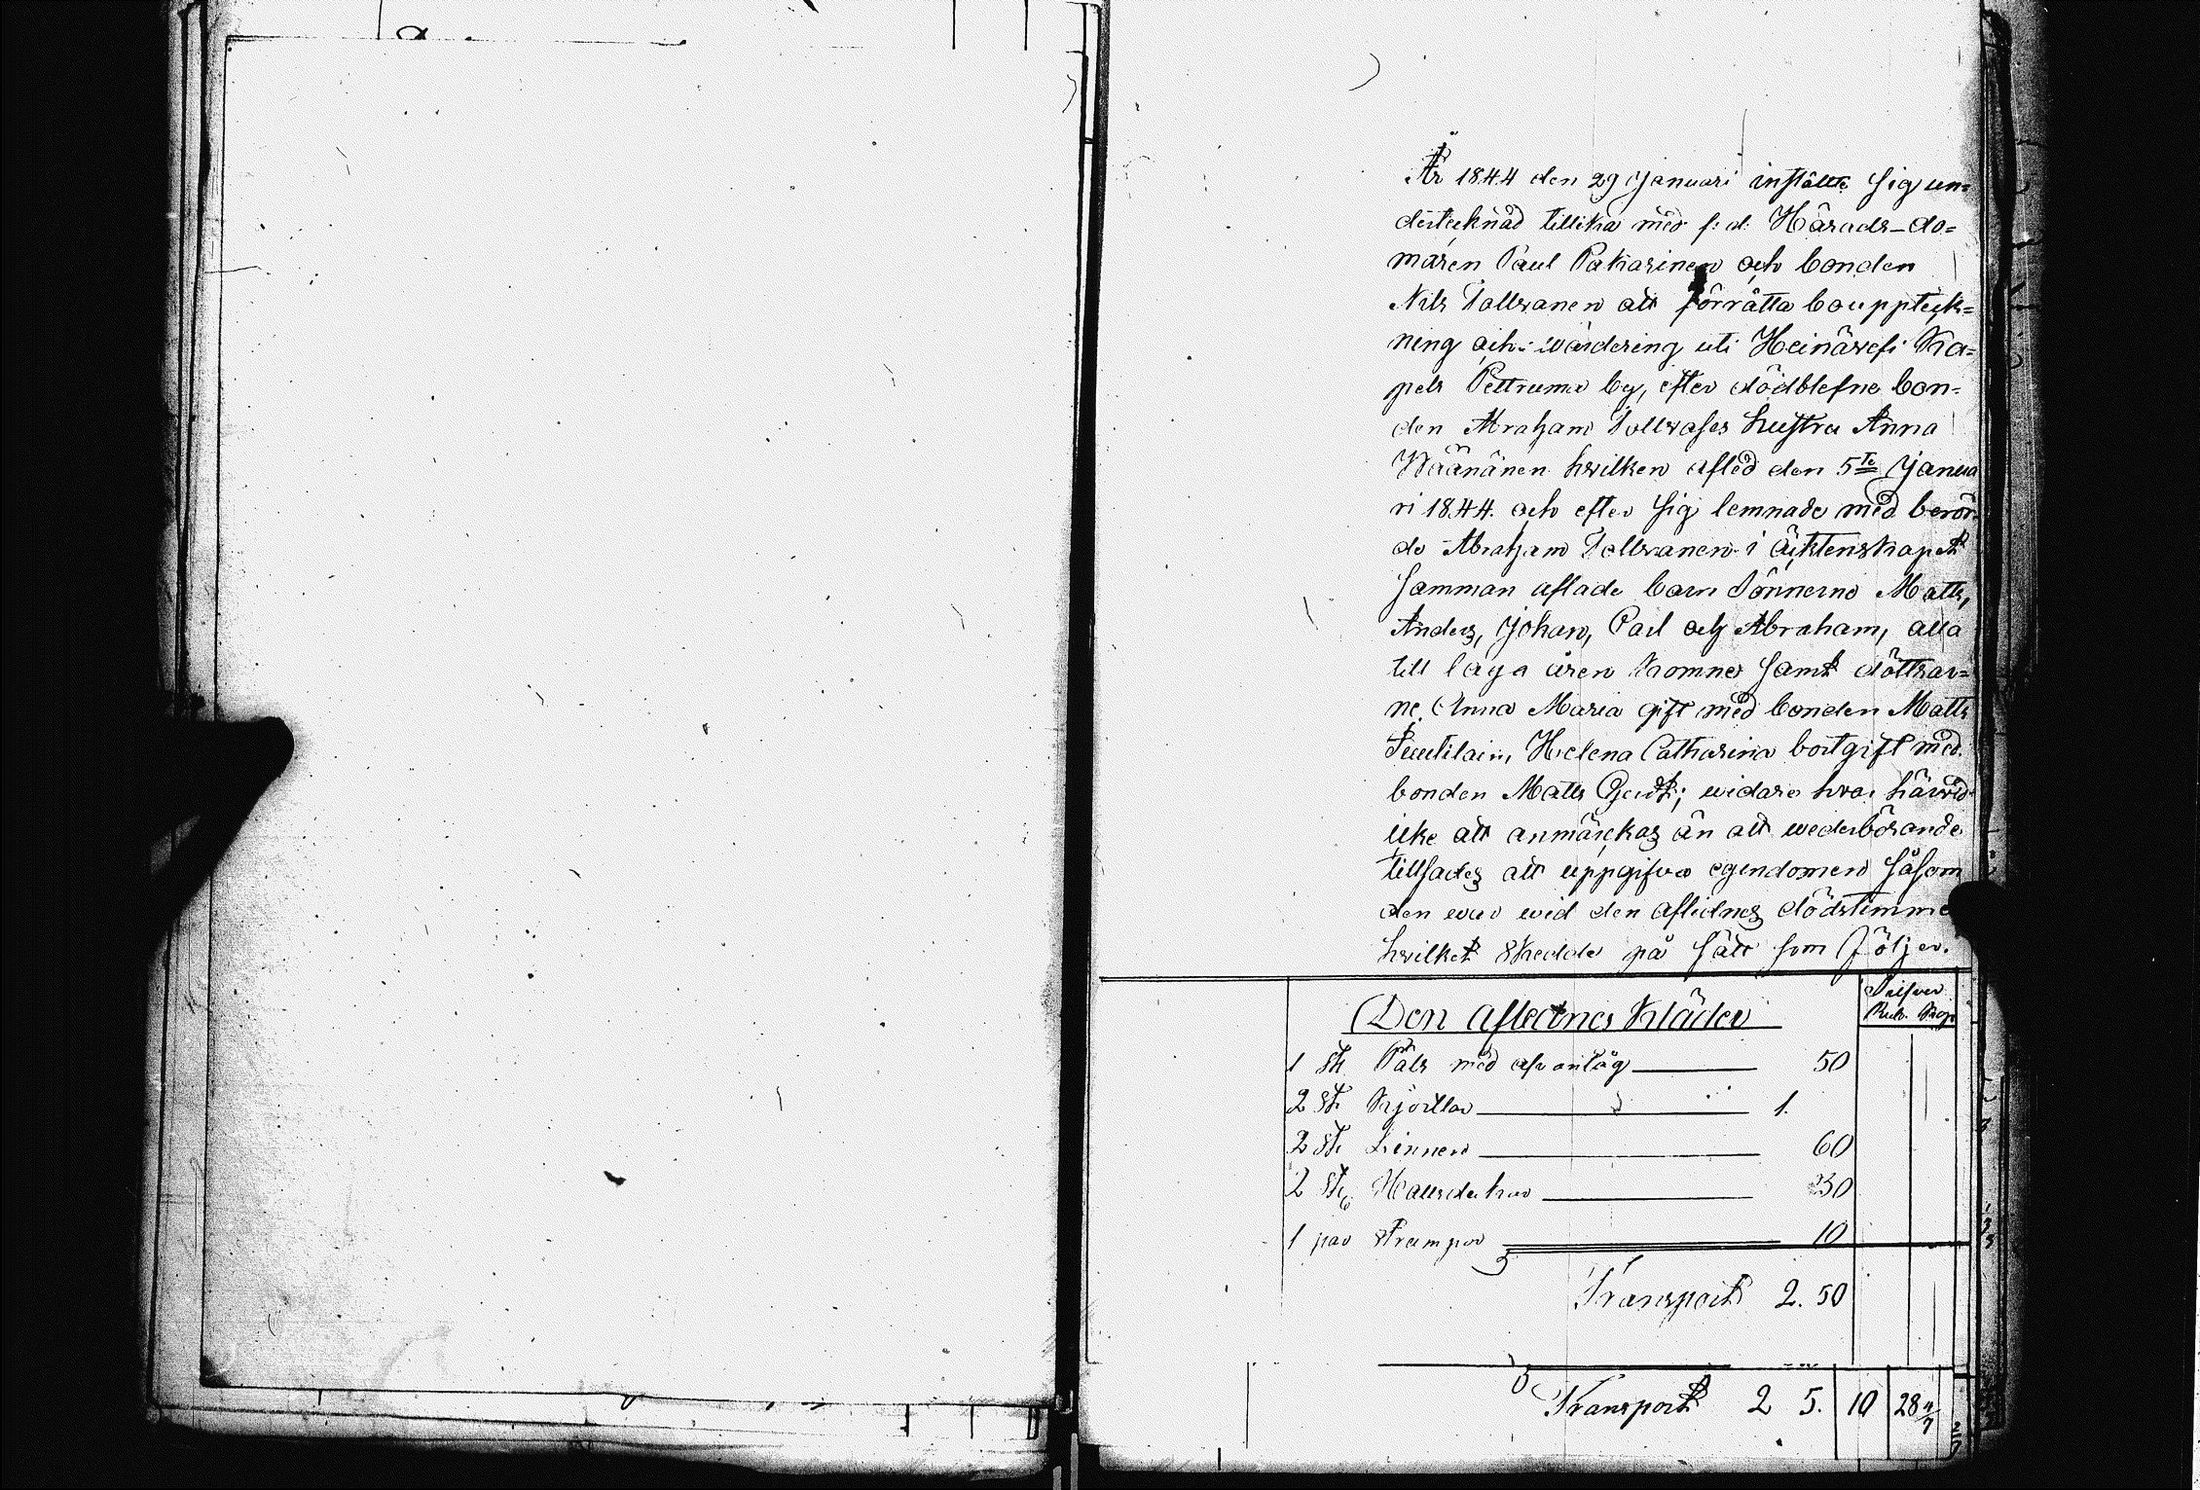 År 1844 den 29 Januari instälte sig un=
dertecknad tillika med f: d: Härads-do=
maren Paul Pakarinen och bonden
Nils Tollvanen att förrätta bouppteck=
ning och wärdering uti Heinävesi Ka=
pels Pettruma by, efter dödblefne bon=
den Abraham Tollvases hustru Anna
Wäänänen hvilken afled den 5te Janua
ri 1844. och efter sig lemnade med berör
de Abraham Tollvanen i äcktenskapet
samman aflade barn Sönnerne Matts,
Anders, Johan, Paul och Abraham, alla
till laga åren komne samt döttrar=
ne. Anna Maria gift med bonden Matts
Helena Catharina bortgift med
bonden Matts widare hvar härvid
icke att anmärckas än att wederbörande
tillsades att uppgifva egendomen såsom
den war wid den aflidnes dödstimme
hvilket skedde på sätt som följer.
Den aflednes Kläder
Silfver
Rub. Kop
1 st. Päls med 50
2 st Kjortlar 1.
2 st Linnen 60
2 st Halsdukar 30
1 par strumpor 10
Transport 2. 50
Transport 2 5. 10 28 4/7